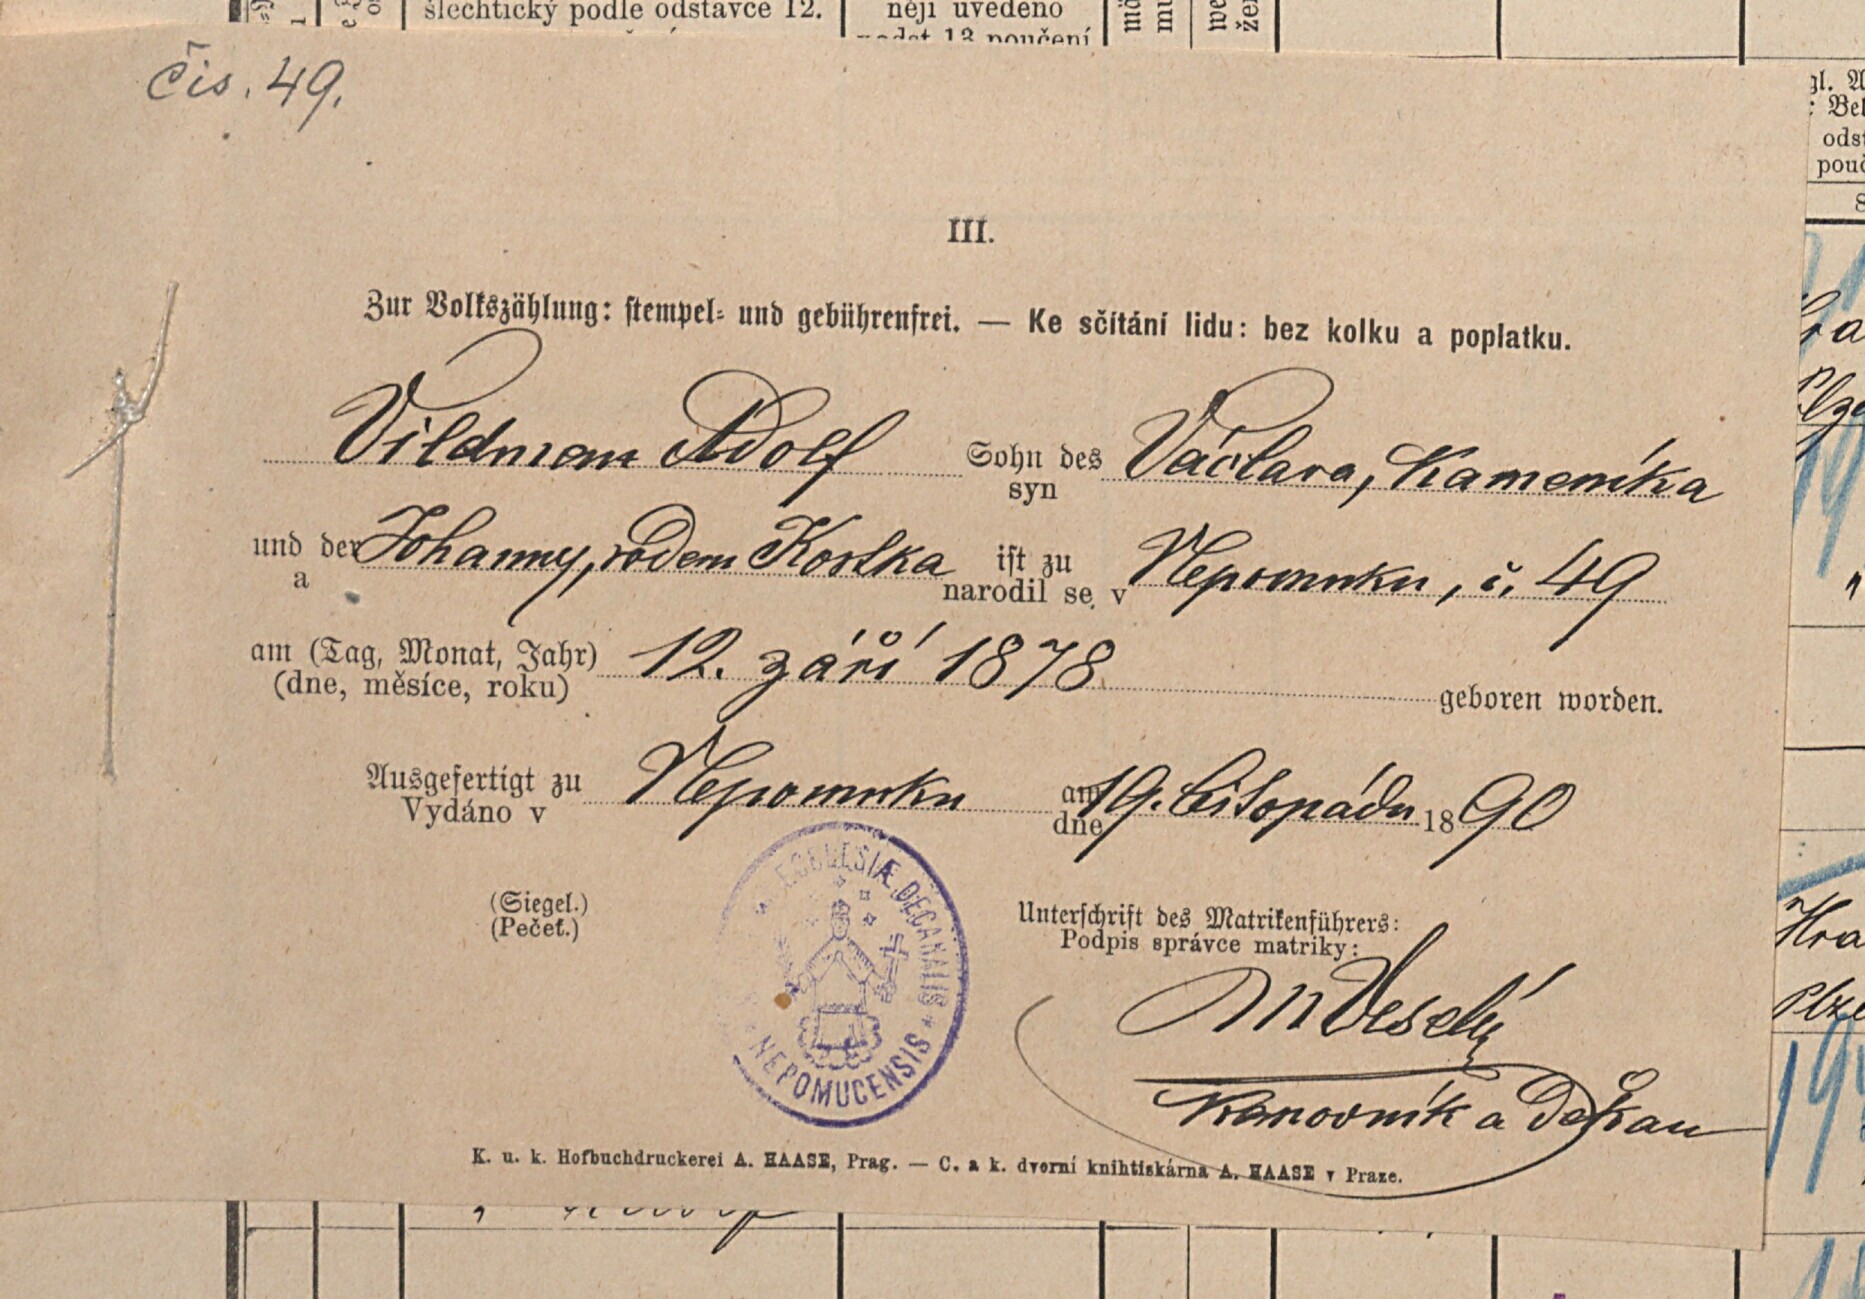 šlechtický podle odstavce 12.
něji uvedeno
13 poučení
čís. 49.
III.
Zur Volkszählung: stempel- und gebührenfrei. — Ke sčítání lidu: bez kolku a poplatku.
Vildman Adolf Sohn des Václava, Kameníka
syn
und der Johanny, rodem Kostka ist zu Nepomuku, č. 49
a narodil se v
am (Tag, Monat, Jahr) 12. září 1878
(dne, měsíce, roku) geboren worden.
Ausgefertigt zu Nepomuku am 19. Listopadu 1890
Vydáno v dne
(Siegel.)
(Pečeť.)
ECCLESIÆ DECANALIS
NEPOMUCENSIS
Unterschrift des Matrikenführers:
Podpis správce matriky:
Veselý
Kanovník a Děkan
K. u. k. Hofbuchdruckerei A. HAASE, Prag. — C. a k. dvorní knihtiskárna A. HAASE v Praze.